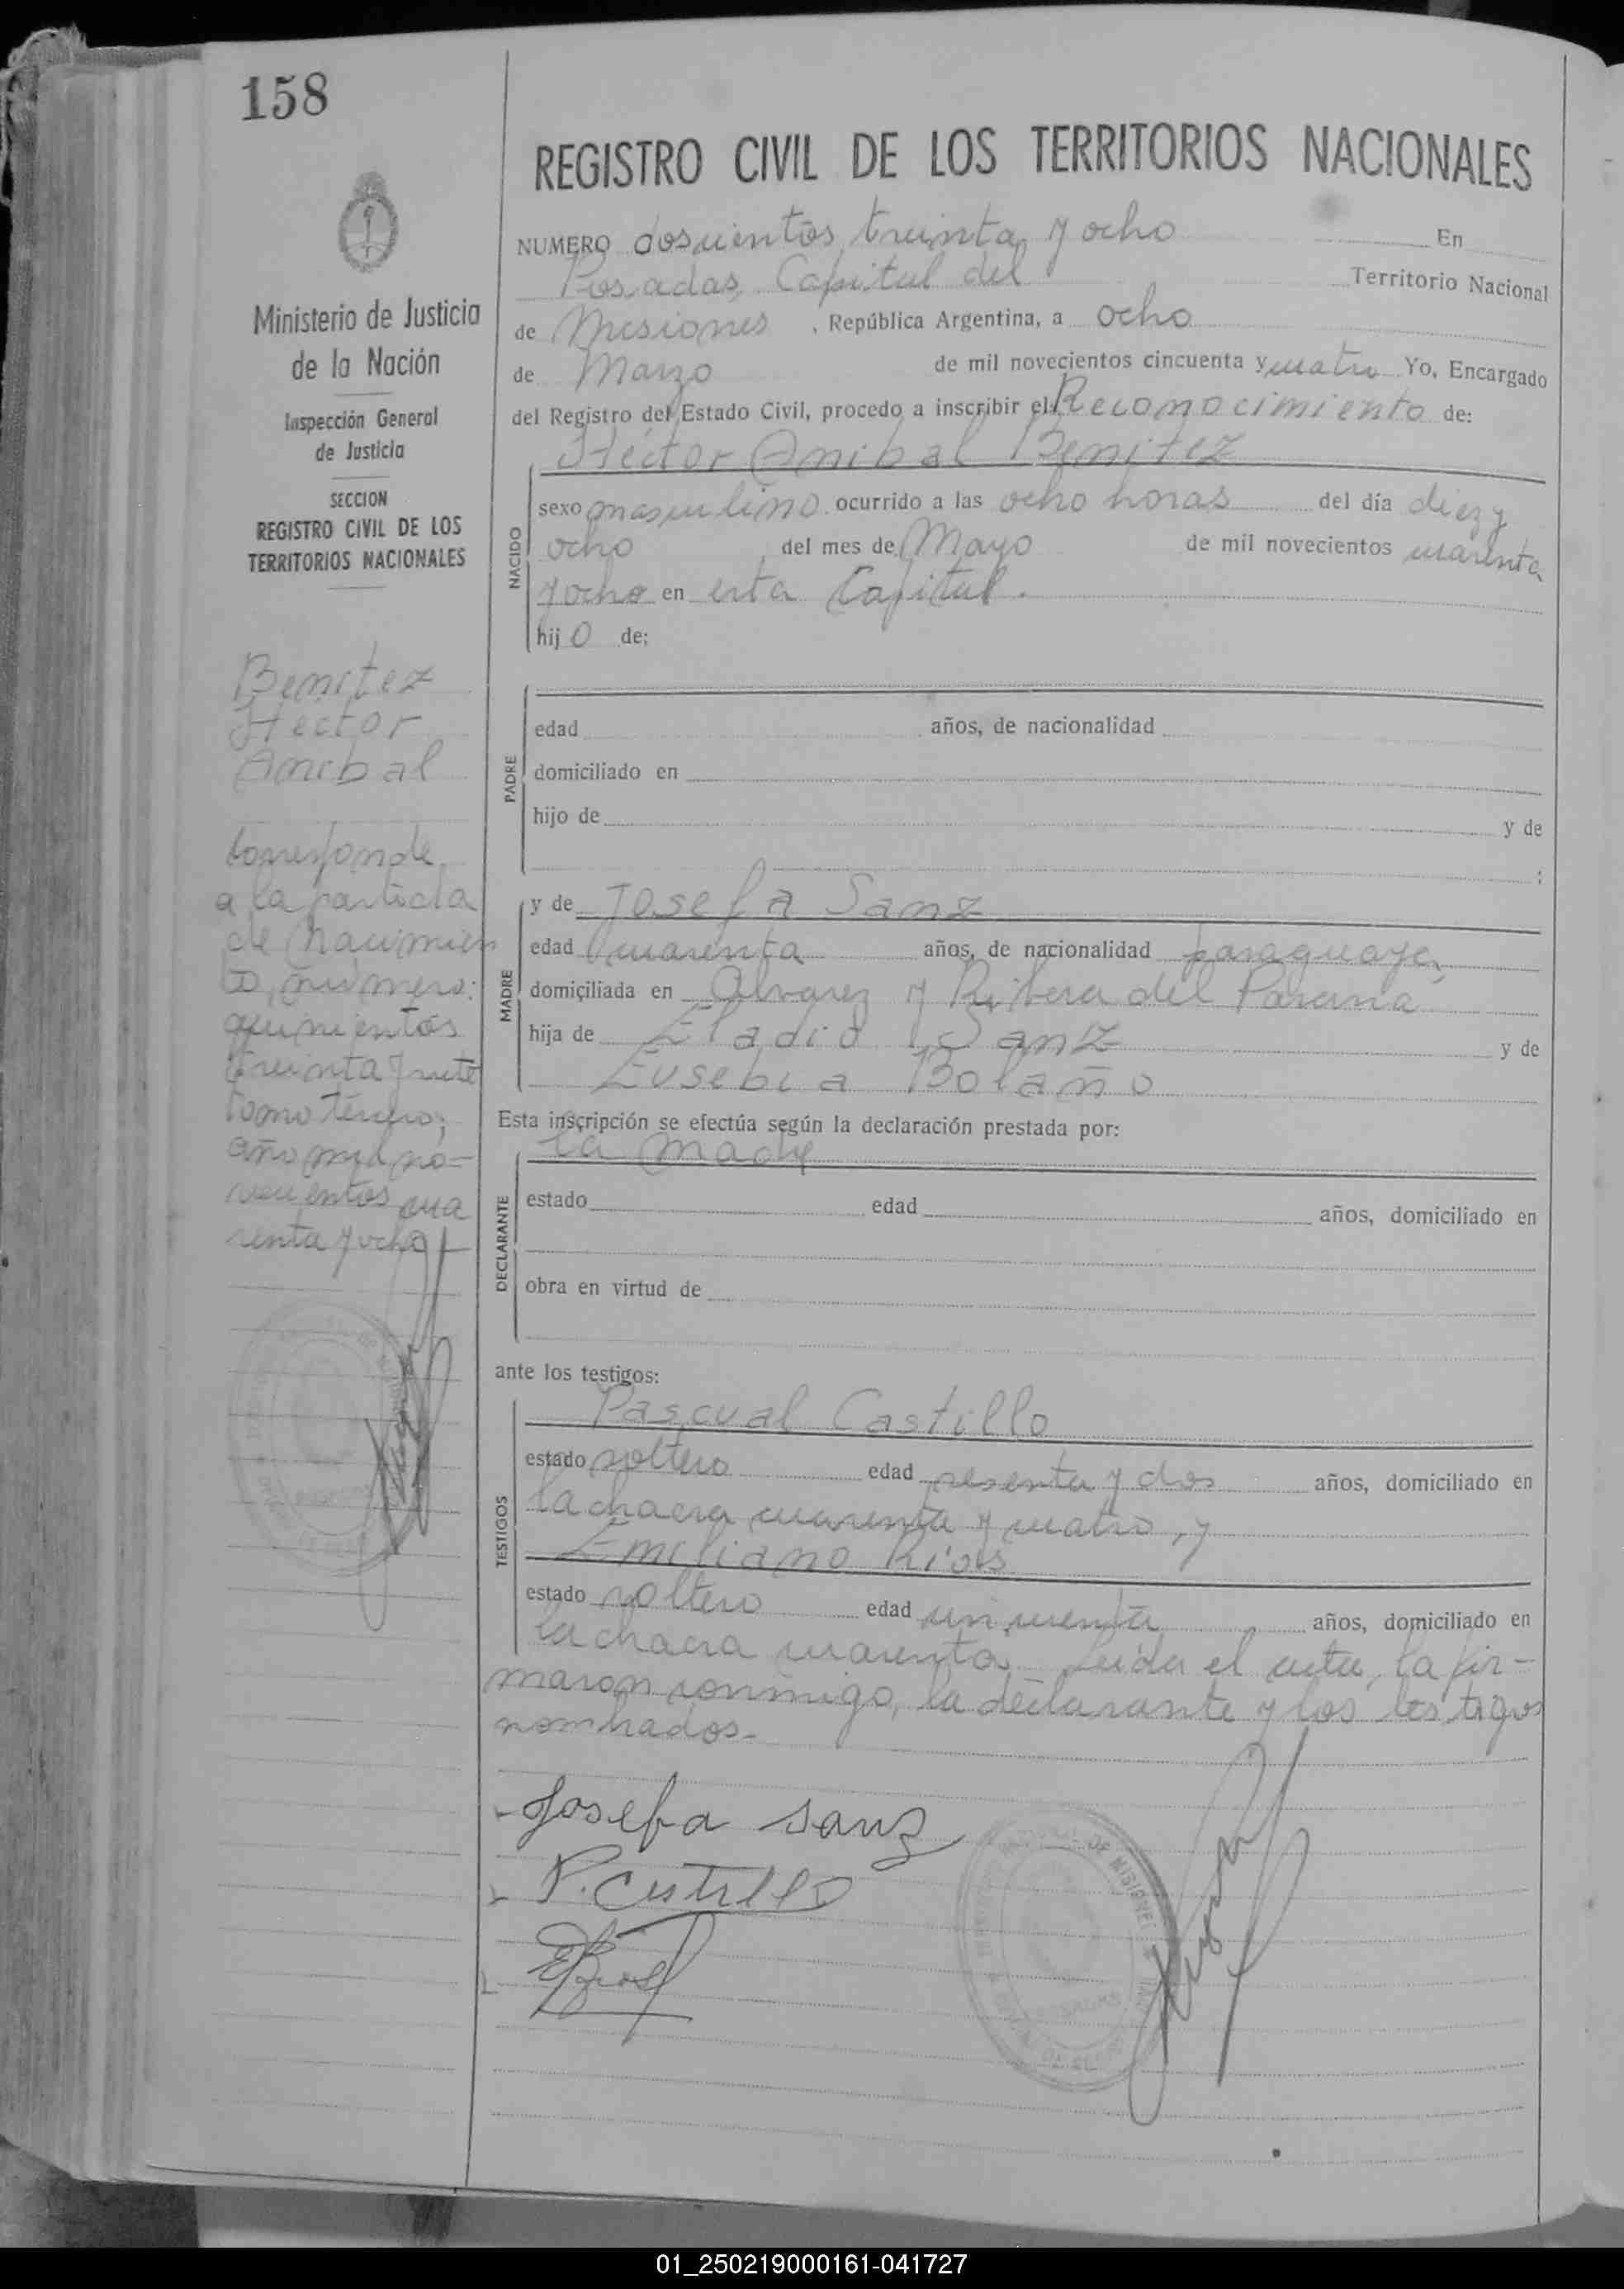 158
REGISTRO CIVIL DE LOS TERRITORIOS NACIONALES
Ministerio de Justicia
de la Nación
Inspección General
de Justicia
SECCION
REGISTRO CIVIL DE LOS
TERRITORIOS NACIONALES
Benitez
Héctor
Anibal
Corresponde
a la partida
de Nacimien
to, número:
quinientos
treinta y siete
tomo tercero;
año mil no-
vecientos cua
renta y ocho
NUMERO doscientos treinta y ocho En
Posadas, Capital del Territorio Nacional
de Misiones , República Argentina, a ocho
de Marzo de mil novecientos cincuenta y cuatro Yo, Encargado
del Registro del Estado Civil, procedo a inscribir el Reconocimiento de:
Héctor Anibal Benitez
NACIDO
sexo masculino ocurrido a las ocho horas del día diez y
ocho del mes de Mayo de mil novecientos cuarenta
y ocho en esta Capital.
hijo de:
PADRE
edad años, de nacionalidad
domiciliado en
hijo de y de
;
MADRE
y de Josefa Sanz
edad cuarenta años, de nacionalidad paraguaya,
domiciliada en Alvarez y Ribera del Paraná
hija de Eladio Sanz y de
Eusebia Bolaño
Esta inscripción se efectúa según la declaración prestada por:
la madre
DECLARANTE
estado edad años, domiciliado en
obra en virtud de
ante los testigos:
TESTIGOS
Pascual Castillo
estado soltero edad sesenta y dos años, domiciliado en
la chacra cuarenta y cuatro, y
Emiliano Ríos
estado soltero edad cincuenta años, domiciliado en
la chacra cuarenta. Leída el acta, la fir-
maron conmigo, la declarante y los testigos
nombrados.-
Josefa Sanz
P. Castillo
E Rios
DE MISIONES
01_250219000161-041727